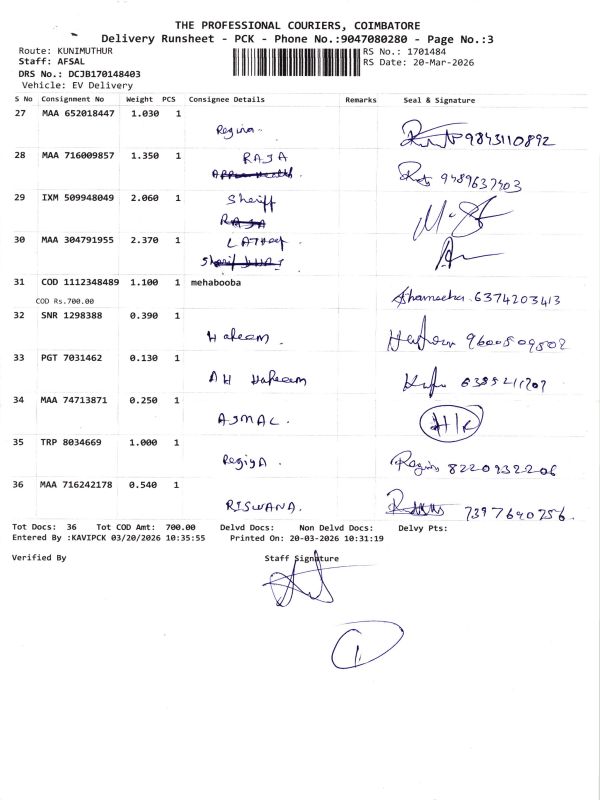 THE PROFESSIONAL COURIERS, COIMBATORE
Delivery Runsheet - PCK - Phone No.:9047080280 - Page No.:3
Route: KUNIMUTHUR
RS No.: 1701484
Staff: AFSAL
RS Date: 20-Mar-2026
DRS No.: DCJB170148403
Vehicle: EV Delivery
S No Consignment No Weight PCS Consignee Details Remarks Seal & Signature
27 MAA 652018447 1.030 1
Regina. 9843110892
28 MAA 716009857 1.350 1
RAJA
9489637403
29 IXM 509948049 2.060 1
Sheriff
RAJA
30 MAA 304791955 2.370 1
LATHeef
31 COD 1112348489 1.100 1 mehabooba
COD Rs.700.00
Shameeha 6374203413
32 SNR 1298388 0.390 1
Hakeem. 9600509502
33 PGT 7031462 0.130 1
AH Hakeem
34 MAA 74713871 0.250 1
AJMAL.
35 TRP 8034669 1.000 1
RegiyA. Regin 8220932206
36 MAA 716242178 0.540 1
RISWANA. 7397640756.
Tot Docs: 36 Tot COD Amt: 700.00 Delvd Docs: Non Delvd Docs: Delvy Pts:
Entered By :KAVIPCK 03/20/2026 10:35:55 Printed On: 20-03-2026 10:31:19
Verified By Staff Signature
1